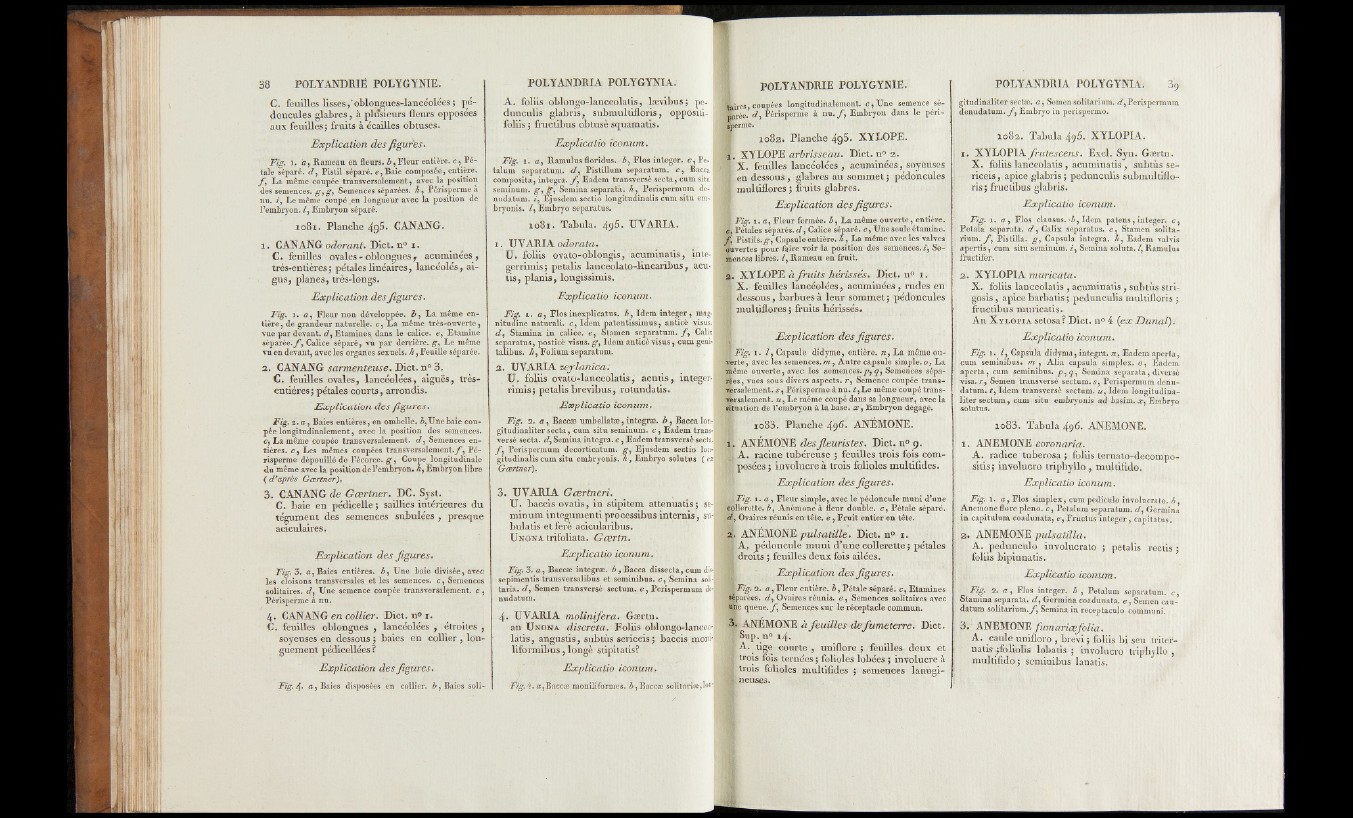 38 POLYANDRIE POLYGYNIE.
C. feuilles lisses, oblongues-lancéolées ; pé-
doncules glabres, à plusieurs fleurs opposées
aux feuilles ; fruits à écailles obtuses.
Explication des figures.
Fig. 1. a, Rameau en fleurs. b, Fleur entière. c, Pé-
tale séparé. d, Pistil séparé. e, Baie composée, entière.
f, La même coupée transversalement, avec la position
des semences. g, g, Semences séparées. h, Périsperme à
nu. i, Le même coupé en longueur avec la position de
l'embryon. l, Embryon séparé.
1081. Planche 495. CANANG.
1. CANANG odorant. Dict. n° 1.
C. feuilles ovales-oblongues, acuminées,
très-entières ; pétales linéaires, lancéolés, ai-
gus, planes, très-longs.
Explication des figures.
Fig. 1. a, Fleur non développée. b, La même en-
tière, de grandeur naturelle. c, La même très-ouverte,
vue par devant. d, Etamines dans le calice. e, Etamine
séparée. f, Calice séparé, vu par derrière. g, Le même
vu en devant, avec les organes sexuels. h, Feuille séparée.
2. CANANG sarmenteuse. Dict. n° 3.
C. feuilles ovales, lancéolées, aiguës, très-
entières ; pétales courts, arrondis.
Explication des figures.
Fig. 2. a, Baies entières, en ombelle. b, Une baie cou-
pée longitudinalement, avec la position des semences.
c, La même coupée transversalement. d, Semences en-
tières. e, Les mêmes coupées transversalement. f, Pé-
risperme dépouillé de l'écorce. g, Coupe longitudinale
du même avec la position de l'embryon. h, Embryon libre
( d'après Gærtner).
3. CANANG de Gærtner. DC. Syst.
C. baie en pédicelle ; saillies intérieures du
tégument des semences subulées , presque
aciculaires.
Explication des figures.
Fig. 3. a, Baies entières. b, Une baie divisée, avec
les cloisons transversales et les semences. c, Semences
solitaires. d, Une semence coupée transversalement. e,
Périsperme à nu.
4. CANANG en collier. Dict. n° 1.
C. feuilles oblongues , lancéolées , étroites ,
soyeuses en dessous ; baies en collier, lon-
guement pédicellées ?
Explication des figures.
Fig. 4. a, Baies disposées en collier. b, Baies soli-
POLYANDRIA POLYGYNIA.
A. foliis oblongo-lanceolatis, lævibus ; pe-
dunculis glabris, submultifloris, oppositi-
foliis ; fructibus obtusè squamatis.
Explicatio iconum.
Fig. 1. a, Ramulus floridus. b, Flos integer. c, Pe-
talum separatum. d, Pistillum separatum. e, Bacca
composita, integra. f, Eadem transversè secta, cum situ
seminum. g, g, Semina separata. h, Perispermum de-
nudatum. i, Ejusdem sectio longitudinalis cum situ em-
bryonis. l, Embryo separatus.
1081. Tabula. 495. UVARIA.
1. UVARIA odorata.
U. foliis ovato-oblongis, acuminatis, inte-
gerrimis ; petalis lanceolato-linearibus, acu-
tis, planis, longissimis.
Explicatio iconum.
Fig. 1. a, Flos inexplicatus. b, Idem integer, mag-
nitudine naturali. c, Idem patentissimus, anticè visus.
d, Stamina in calice. e, Stamen separatum. f, Calix
separatus, posticè visus. g, Idem anticè visus, cum geni-
talibus. h, Folium separatum.
2. UVARIA zeylanica.
U. foliis ovato-lanceolatis, acutis, integer-
rimis ; petalis brevibus, rotundatis.
Explicatio iconum.
Fig. 2. a, Baccæ umbellatæ, integræ. b, Bacca lon-
gitudinaliter secta, cum situ seminum. c, Eadem trans-
versè secta. d, Semina integra. e, Eadem transversè secta.
f, Perispermum decorticatum. g, Ejusdem sectio lon-
gitudinalis cum situ embryonis. h, Embryo solutus ( ex
Gærtner).
3. UVARIA Gærtneri.
U. baccis ovatis, in stipitem attenuatis ; se-
minum integumenti processibus internis, su-
bulatis et ferè acicularibus.
UNONA trifoliata. Gærtn.
Explicatio iconum.
Fig. 3. a, Baccæ integræ. b, Bacca dissecta, cum dis-
sepimentis transversalibus et seminibus. c, Semina soli-
taria. d, Semen transversè sectum. e, Perispermum de-
nudatum.
4. UVARIA molinifera. Gærtn.
an UNONA discreta. Foliis oblongo-lanceo-
latis, angustis, subtùs sericeis ; baccis moni-
liformibus, longè stipitatis?
Explicatio iconum.
Fig. 4. a, Baccæ moniliformes. b, Baccæ solitariæ, lon-
POLYANDRIE POLYGYNIE.
taires, coupées longitudinalement. c, Une semence sé-
parée. d, Périsperme à nu. f, Embryon dans le péri-
sperme.
1082. Planche 495. XYLOPE.
1. XYLOPE arbrisseau. Dict. n° 2.
X. feuilles lancéolées , acuminées, soyeuses
en dessous , glabres au sommet ; pédoncules
multiflores ; fruits glabres.
Explication des figures.
Fig. 1. a, Fleur fermée. b, La même ouverte, entière.
c, Pétales séparés. d, Calice séparé. e, Une seule étamine.
f, Pistils. g, Capsule entière. h, La même avec les valves
ouvertes pour faire voir la position des semences. i, Se-
mences libres. l, Rameau en fruit.
2. XYLOPE à fruits hérissés. Dict. n° 1.
X. feuilles lancéolées, acuminées, rudes en
dessous, barbues à leur sommet ; pédoncules
multiflores ; fruits hérissés.
Explication des figures.
Fig. 1. l, Capsule didyme, entière. n, La même ou-
verte, avec les semences. m, Autre capsule simple. o, La
même ouverte, avec les semences. p, q, Semences sépa-
rées, vues sous divers aspects. r, Semence coupée trans-
versalement. s, Périsperme à nu. t, Le même coupé trans-
versalement. u, Le même coupé dans sa longueur, avec la
situation de l'embryon à la base. x, Embryon dégagé.
1083. Planche 496. ANÉMONE.
1. ANÉMONE des fleuristes. Dict. n° 9.
A. racine tubéreuse ; feuilles trois fois com-
posées ; involucre à trois folioles multifides.
Explication des figures.
Fig. 1. a, Fleur simple, avec le pédoncule muni d'une
collerette. b, Anémone à fleur double. c, Pétale séparé.
d, Ovaires réunis en tête. e, Fruit entier en tête.
2. ANÉMONE pulsatille. Dict. n° 1.
A. pédoncule muni d'une collerette ; pétales
droits ; feuilles deux fois ailées.
Explication des figures.
Fig. 2. a, Fleur entière. b, Pétale séparé. c, Etamines
séparées. d, Ovaires réunis. e, Semences solitaires avec
une queue. f, Semences sur le réceptacle commun.
3. ANÉMONE à feuilles de fumeterre. Dict.
Sup. n° 14.
A. tige courte , uniflore ; feuilles deux et
trois fois ternées ; folioles lobées ; involucre à
trois folioles multifides ; semences lanugi-
neuses.
POLYANDRIA POLYGYNIA. 39
gitudinaliter sectæ. c, Semen solitarium. d, Perispermum
denudatum. f, Embryo in perispermo.
1082. Tabula 496. XYLOPIA.
1. XYLOPIA frutescens. Excl. Syn. Gærtn.
X. foliis lanceolatis , acuminatis , subtùs se-
riceis, apice glabris ; pedunculis submultiflo-
ris ; fructibus glabris.
Explicatio iconum.
Fig. 1. a, Flos clausus. b, Idem patens, integer. c,
Petala separata. d, Calix separatus. e, Stamen solita-
rium. f, Pistilla. g, Capsula integra. h, Eadem valvis
apertis, cum situ seminum. i, Semina soluta. l, Ramulus
fructifer.
2. XYLOPIA muricata.
X. foliis lanceolatis , acuminatis , subtùs stri-
gosis, apice barbatis ; pedunculis multifloris ;
fructibus muricatis.
An XYLOPIA setosa? Dict. n° 4 (ex Dunal).
Explicatio iconum.
Fig. 1. l, Capsula didyma, integra. n, Eadem aperta,
cum seminibus. m, Alia capsula simplex. o, Eadem
aperta, cum seminibus. p, q, Semina separata, diversè
visa. r, Semen transversè sectum. s, Perispermum denu-
datum. t, Idem transversè sectum. u, Idem longitudina-
liter sectum, cum situ embryonis ad basim. x, Embryo
solutus.
1083. Tabula 496. ANEMONE.
1. ANEMONE coronaria.
A. radice tuberosa ; foliis ternato-decompo-
sitis ; involucro triphyllo , multifido.
Explicatio iconum.
Fig. 1. a, Flos simplex, cum pediculo involucrato. b,
Anemone flore pleno. c, Petalum separatum. d, Germina
in capitulum coadunata. e, Fructus integer, capitatus.
2. ANEMONE pulsatilla.
A. pedunculo involucrato ; petalis rectis ;
foliis bipinnatis.
Explicatio iconum.
Fig. 2. a, Flos integer. b, Petalum separatum. c,
Stamina separata. d, Germina coadunata. e, Semen cau-
datum solitarium. f, Semina in receptaculo communi.
3. ANEMONE fumariæfolia.
A. caule unifloro , brevi ; foliis bi seu triter-
natis ; foliolis lobatis ; involucro triphyllo ,
multifido ; seminibus lanatis.